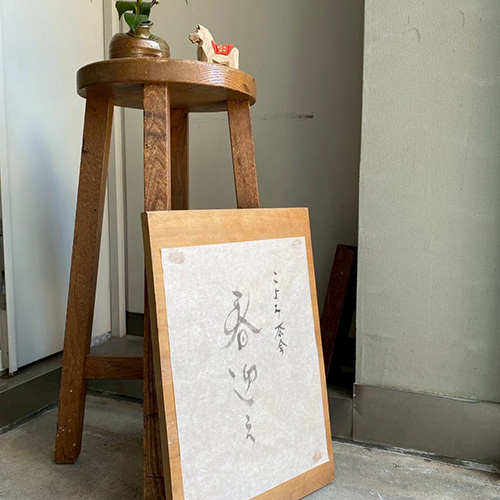 こよみ茶会
春迎え